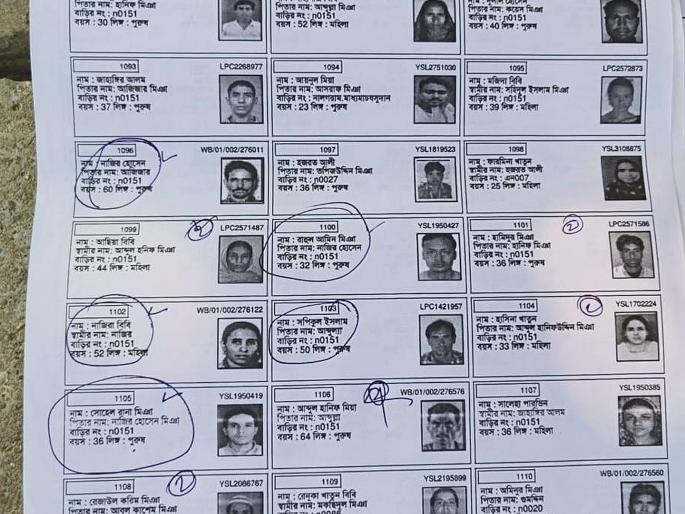 পিতার নাম: হানিফ মিঞা
বাড়ির নং : n0151
বয়স : 30 লিঙ্গ : পুরুষ
পিতার নাম: আব্দুল্লা মিঞা
বাড়ির নং : n0151
বয়স : 52 লিঙ্গ : মহিলা
পিতার নাম: কয়েস মিঞা
বাড়ির নং : n0151
বয়স : 40 লিঙ্গ : পুরুষ
1093 LPC2268977
নাম : জাহাঙ্গির আলম
পিতার নাম: আজিজার মিঞা
বাড়ির নং : n0151
বয়স : 37 লিঙ্গ : পুরুষ
1094 YSL2751030
নাম : আয়নুল মিয়া
পিতার নাম: আসরাফ মিঞা
বাড়ির নং : নালগ্রাম,মাধ্যমাচযসুদান
বয়স : 23 লিঙ্গ : পুরুষ
1095 LPC2572873
নাম : মজিনা বিবি
স্বামীর নাম: সহিদুল ইসলাম মিঞা
বাড়ির নং : n0151
বয়স : 39 লিঙ্গ : মহিলা
1096 WB/01/002/276011
নাম : নাজির হোসেন
পিতার নাম: আজিজার
বাড়ির নং : n0151
বয়স : 60 লিঙ্গ : পুরুষ
1097 YSL1819523
নাম : হজরত আলী
পিতার নাম: তপিজউদ্দিন মিঞা
বাড়ির নং : n0027
বয়স : 36 লিঙ্গ : পুরুষ
1098 YSL3106875
নাম : ফারমিনা খাতুন
স্বামীর নাম: হজরত আলী
বাড়ির নং : এন007
বয়স : 25 লিঙ্গ : মহিলা
1099 LPC2571487
নাম : আছিয়া বিবি
স্বামীর নাম: আব্দুল হানিফ মিঞা
বাড়ির নং : n0151
বয়স : 44 লিঙ্গ : মহিলা
1100 YSL1950427
নাম : রাহুল আমিন মিঞা
পিতার নাম: নাজির হোসেন
বাড়ির নং : n0151
বয়স : 32 লিঙ্গ : পুরুষ
1101 LPC2571586
নাম : হামিদুর মিঞা
পিতার নাম: হানিফ মিঞা
বাড়ির নং : n0151
বয়স : 36 লিঙ্গ : পুরুষ
1102 WB/01/002/276122
নাম : নাজিরা বিবি
স্বামীর নাম: নাজির
বাড়ির নং : n0151
বয়স : 52 লিঙ্গ : মহিলা
1103 LPC1421957
নাম : সপিকুল ইসলাম
পিতার নাম: আব্দুল্যা
বাড়ির নং : n0151
বয়স : 50 লিঙ্গ : পুরুষ
1104 YSL1702224
নাম : হাসিনা খাতুন
পিতার নাম: আব্দুল হানিফউদ্দিন মিঞা
বাড়ির নং : n0151
বয়স : 33 লিঙ্গ : মহিলা
1105 YSL1950419
নাম : সোহেল রানা মিঞা
পিতার নাম: নাজির হোসেন মিঞা
বাড়ির নং : n0151
বয়স : 36 লিঙ্গ : পুরুষ
1106 WB/01/002/276576
নাম : আব্দুল হানিফ মিয়া
পিতার নাম: আব্দুল্লা
বাড়ির নং : n0151
বয়স : 64 লিঙ্গ : পুরুষ
1107 YSL1950385
নাম : সালেহা পারভিন
স্বামীর নাম: জাহাঙ্গির আলম
বাড়ির নং : n0151
বয়স : 36 লিঙ্গ : মহিলা
1108 YSL2086767
নাম : রেজাউল করিম মিঞা
পিতার নাম: আবুল কাশেম মিঞা
1109 YSL2195899
নাম : রেনুকা খাতুন বিবি
স্বামীর নাম: মকছিদুল মিঞা
1110 WB/01/002/276560
নাম : অমিনুর মিঞা
পিতার নাম: গুমদ্দিন
বাড়ির নং : n0020